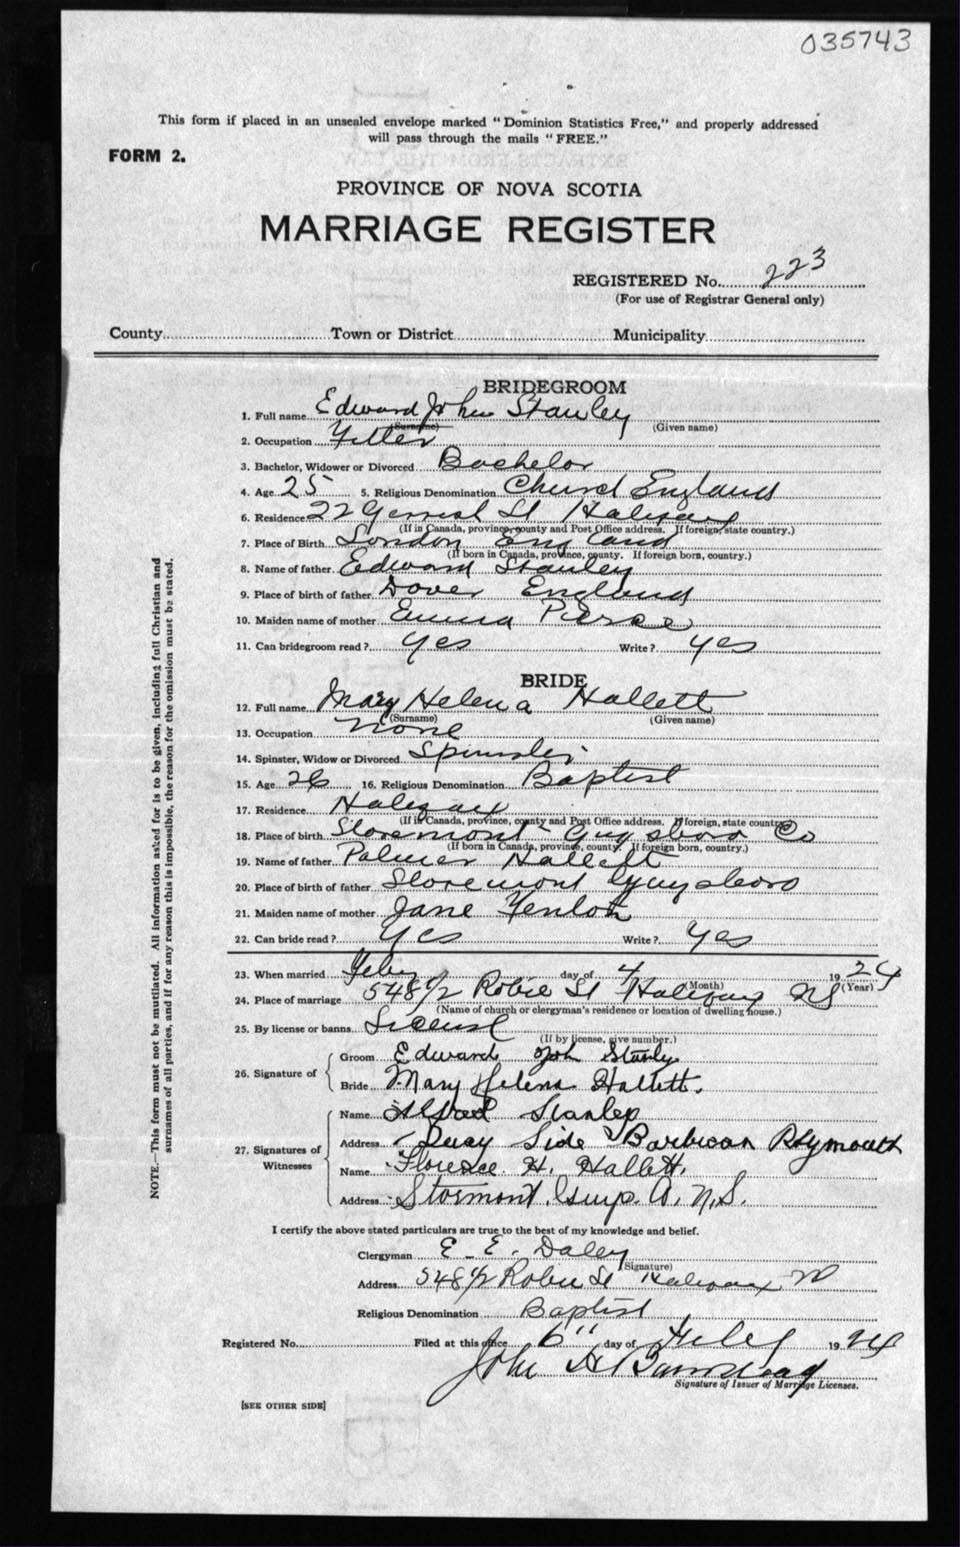 035743
This form if placed in an unsealed envelope marked "Dominion Statistics Free," and properly addressed
will pass through the mails "FREE."
FORM 2.
PROVINCE OF NOVA SCOTIA
MARRIAGE REGISTER
REGISTERED No. 223
(For use of Registrar General only)
County Town or District Municipality
BRIDEGROOM
1. Full name Edward John Stanley
(Surname) (Given name)
2. Occupation Fitter
3. Bachelor, Widower or Divorced Bachelor
4. Age 25 5. Religious Denomination Church England
6. Residence 22 Gerrish St Halifax
(If in Canada, province, county and Post Office address. If foreign, state country.)
7. Place of Birth London England
(If born in Canada, province, county. If foreign born, country.)
8. Name of father Edward Stanley
9. Place of birth of father Dover England
10. Maiden name of mother Emma Pierce
11. Can bridegroom read? yes Write? yes
BRIDE
12. Full name Mary Helena Hallett
(Surname) (Given name)
13. Occupation None
14. Spinster, Widow or Divorced Spinster
15. Age 26 16. Religious Denomination Baptist
17. Residence Halifax
(If in Canada, province, county and Post Office address. If foreign, state country.)
18. Place of birth Storemont - Guysboro Co
(If born in Canada, province, county. If foreign born, country.)
19. Name of father Palmer Hallett
20. Place of birth of father Storemont Guysboro
21. Maiden name of mother Jane
22. Can bride read? yes Write? yes
23. When married Feby day of 4 1924
(Month) (Year)
24. Place of marriage 548 1/2 Robie St Halifax NS
(Name of church or clergyman's residence or location of dwelling house.)
25. By license or banns License
(If by license, give number.)
26. Signature of
Groom Edward John Stanley
Bride Mary Helena Hallett.
27. Signatures of Witnesses
Name Alfred Stanley
Address Quay Side Barbican Plymouth
Name Florence H. Hallett.
Address Stormont, Guys. Co. N.S.
I certify the above stated particulars are true to the best of my knowledge and belief.
Clergyman E. E. Daley
(Signature)
Address 548 1/2 Robie St Halifax
Religious Denomination Baptist
Registered No. Filed at this office 6" day of Feby 1924
John H Barnstead
Signature of Issuer of Marriage Licenses.
[SEE OTHER SIDE]
NOTE.—This form must not be mutilated. All information asked for is to be given, including full Christian and
surnames of all parties, and if for any reason this is impossible, the reason for the omission must be stated.